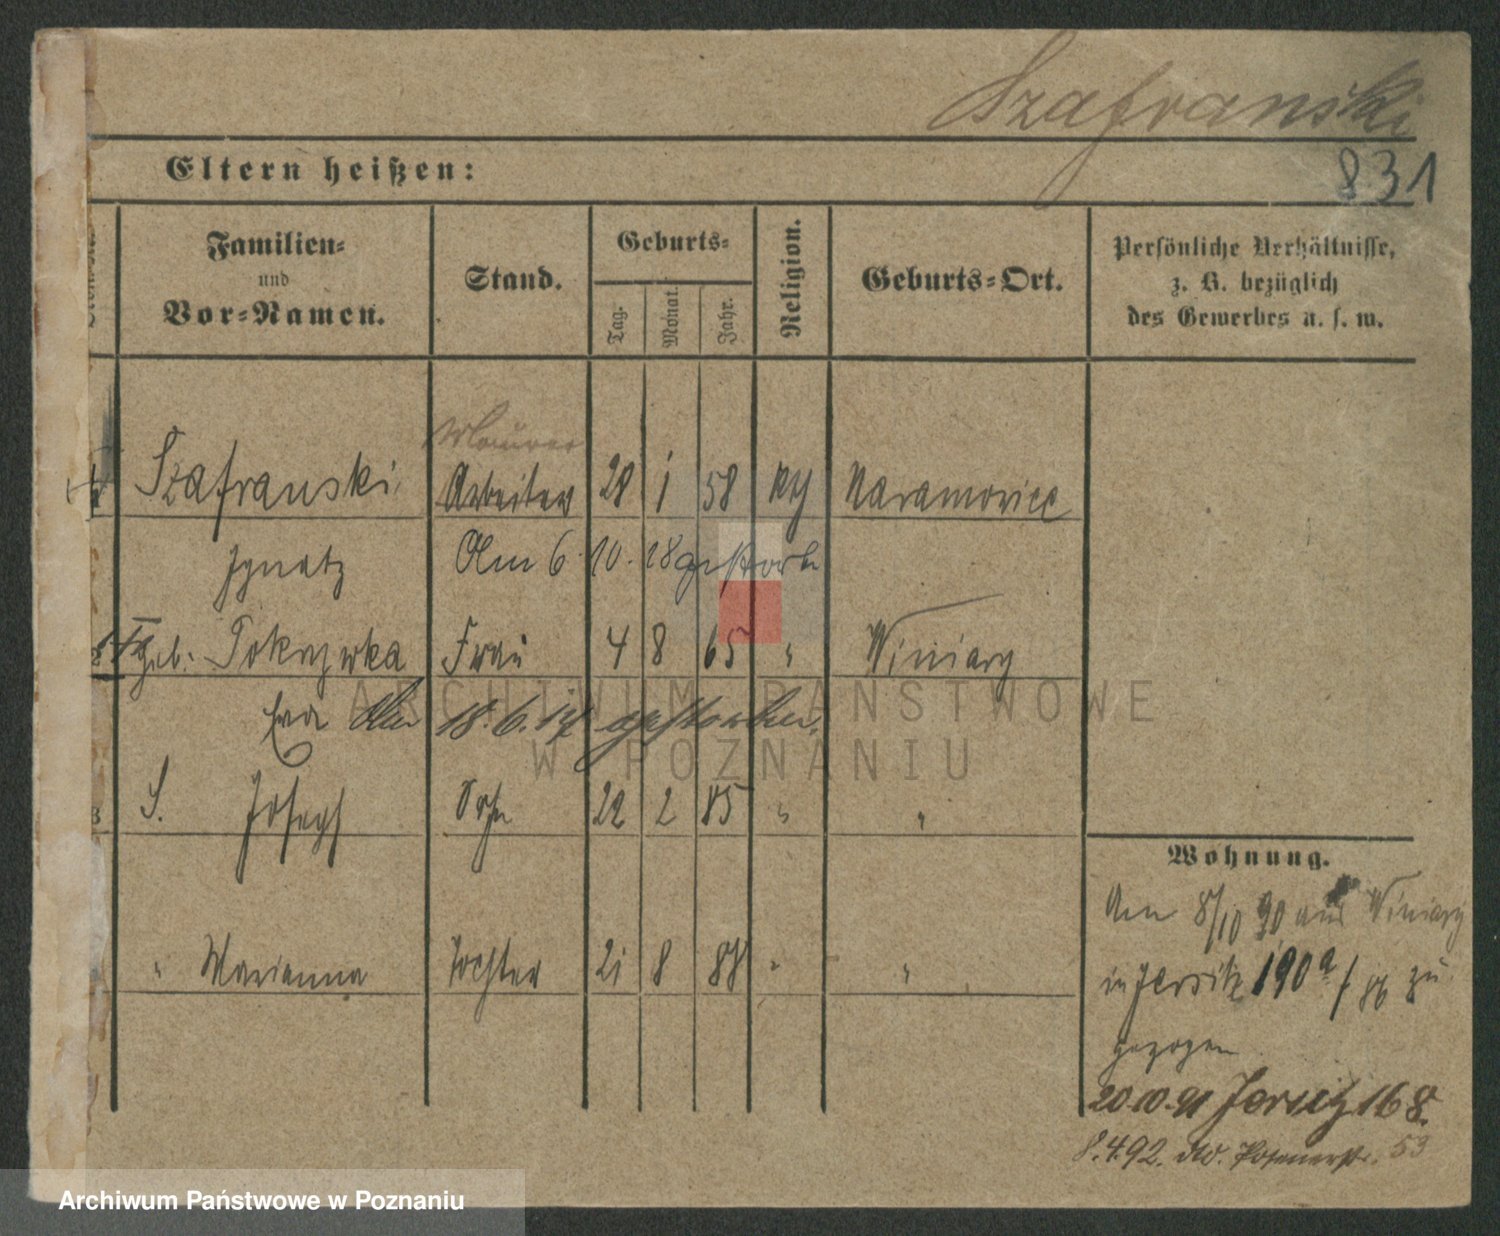 Szafranski
831
Eltern heißen:
Familien-
und
Vor-Namen.
Stand.
Geburts-
Tag.
Monat.
Jahr.
Religion.
Geburts-Ort.
Persönliche Verhältnisse,
z. B. bezüglich
des Gewerbes u. s. w.
Maurer
Szafranski Arbeiter 28 1 58 kth Naramowice
Ignatz Am 6. 10. 18 gestorb.
geb. Pokrzywka Frau 4 8 65 " Winiary
Eva Am 18. 6. 17 gestorben.
S. Joseph Sohn 22 2 85 " "
" Marianna Tochter 21 8 88 " "
Wohnung.
Am 8/10 90 aus Winiary
in Jersitz 190a / zu
gezogen
20.10.91 Jersitz 168.
8.4.92. do. Posenerstr. 53
ARCHIWUM PAŃSTWOWE
W POZNANIU
Archiwum Państwowe w Poznaniu